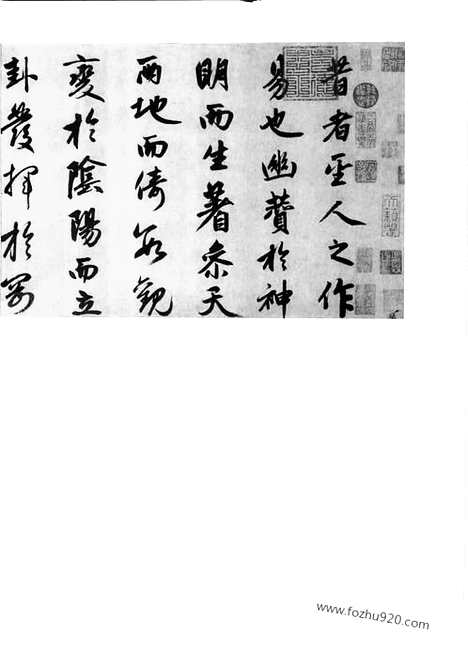 昔者聖人之作
易也幽贊於神
明而生蓍參天
兩地而倚數觀
變於陰陽而立
卦發揮於剛
www.fozhu920.com